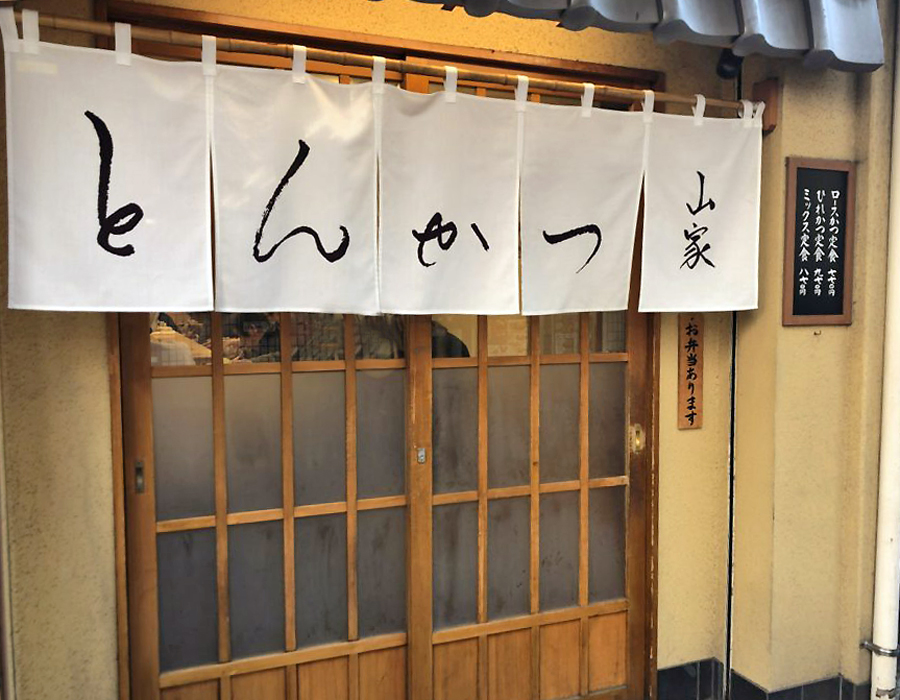 とんかつ
山家
ロースかつ定食 七七〇円
ひれかつ定食 九七〇円
ミックス定食 八七〇円
お弁当あります